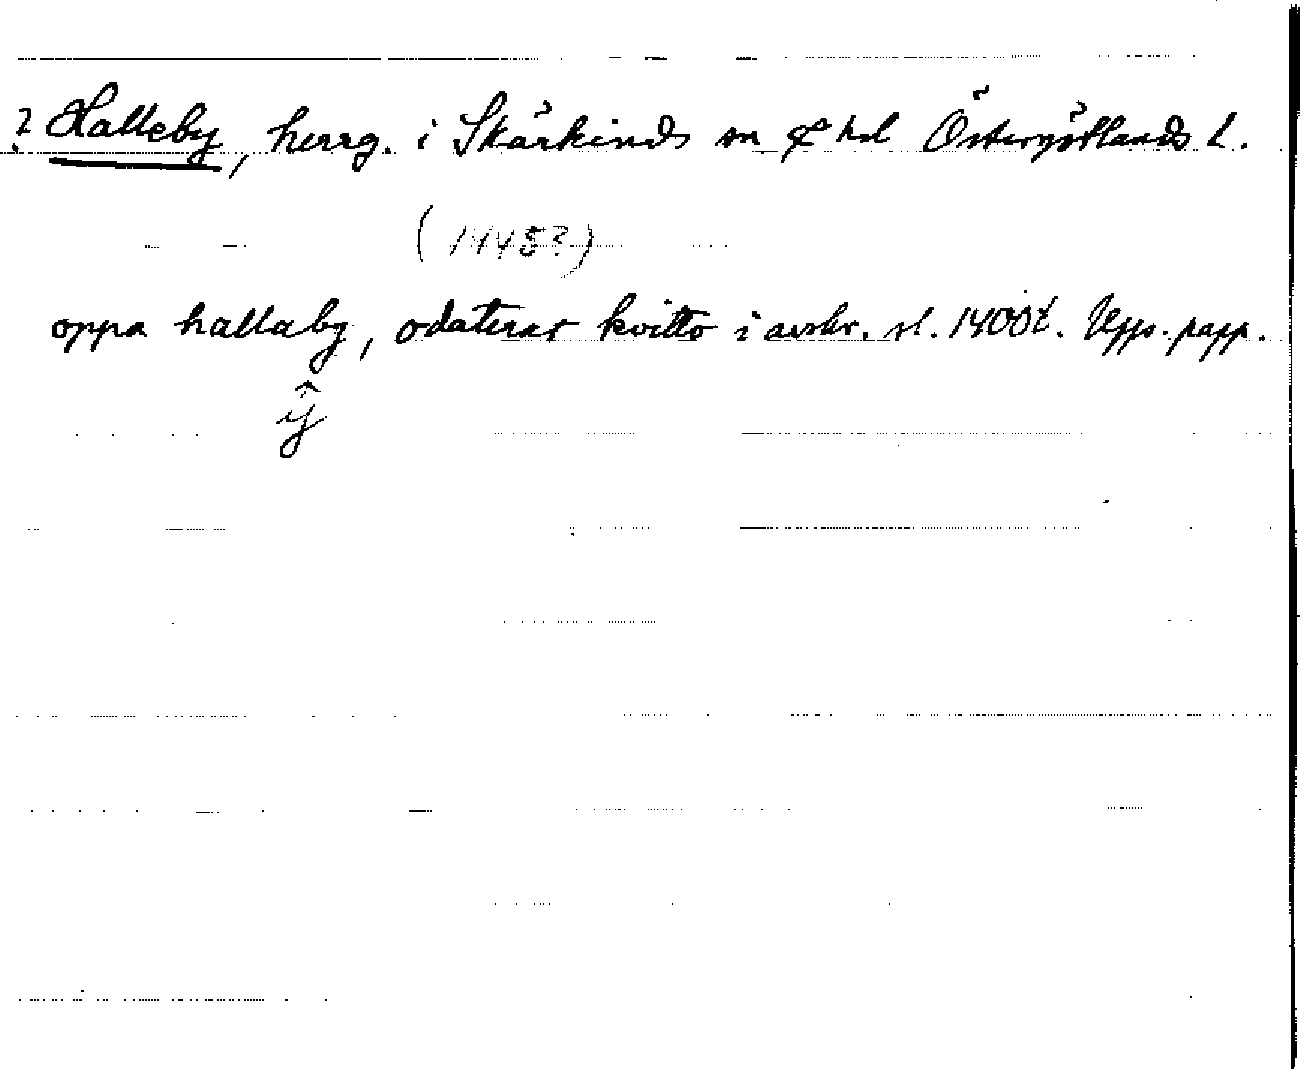 ? Halleby, herrg. i Skärkinds sn & hd Östergötlands l.
(1445?)
oppa hallaby, odaterat kvitto i avskr. sl. 1400t. Upps. papp.
ÿ